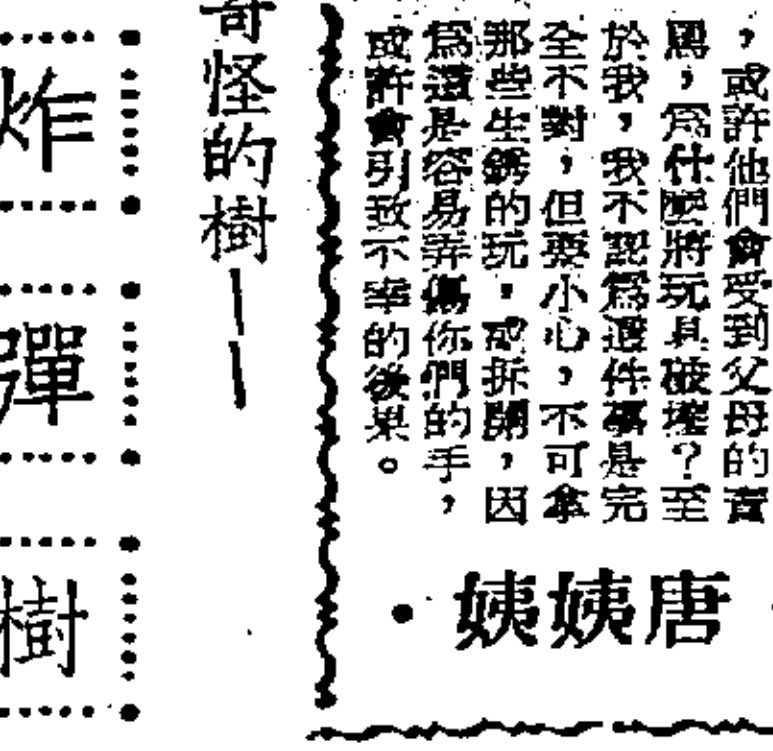 ，或許他們會受到父母的責
罵，爲什麼將玩具破壞？至
於我，我不認爲這件事是完
全不對，但要小心，不可拿
那些生銹的玩，或拆開，因
爲這是容易弄傷你們的手，
或許會引致不幸的後果。
唐姨姨
奇怪的樹——
炸
彈
樹